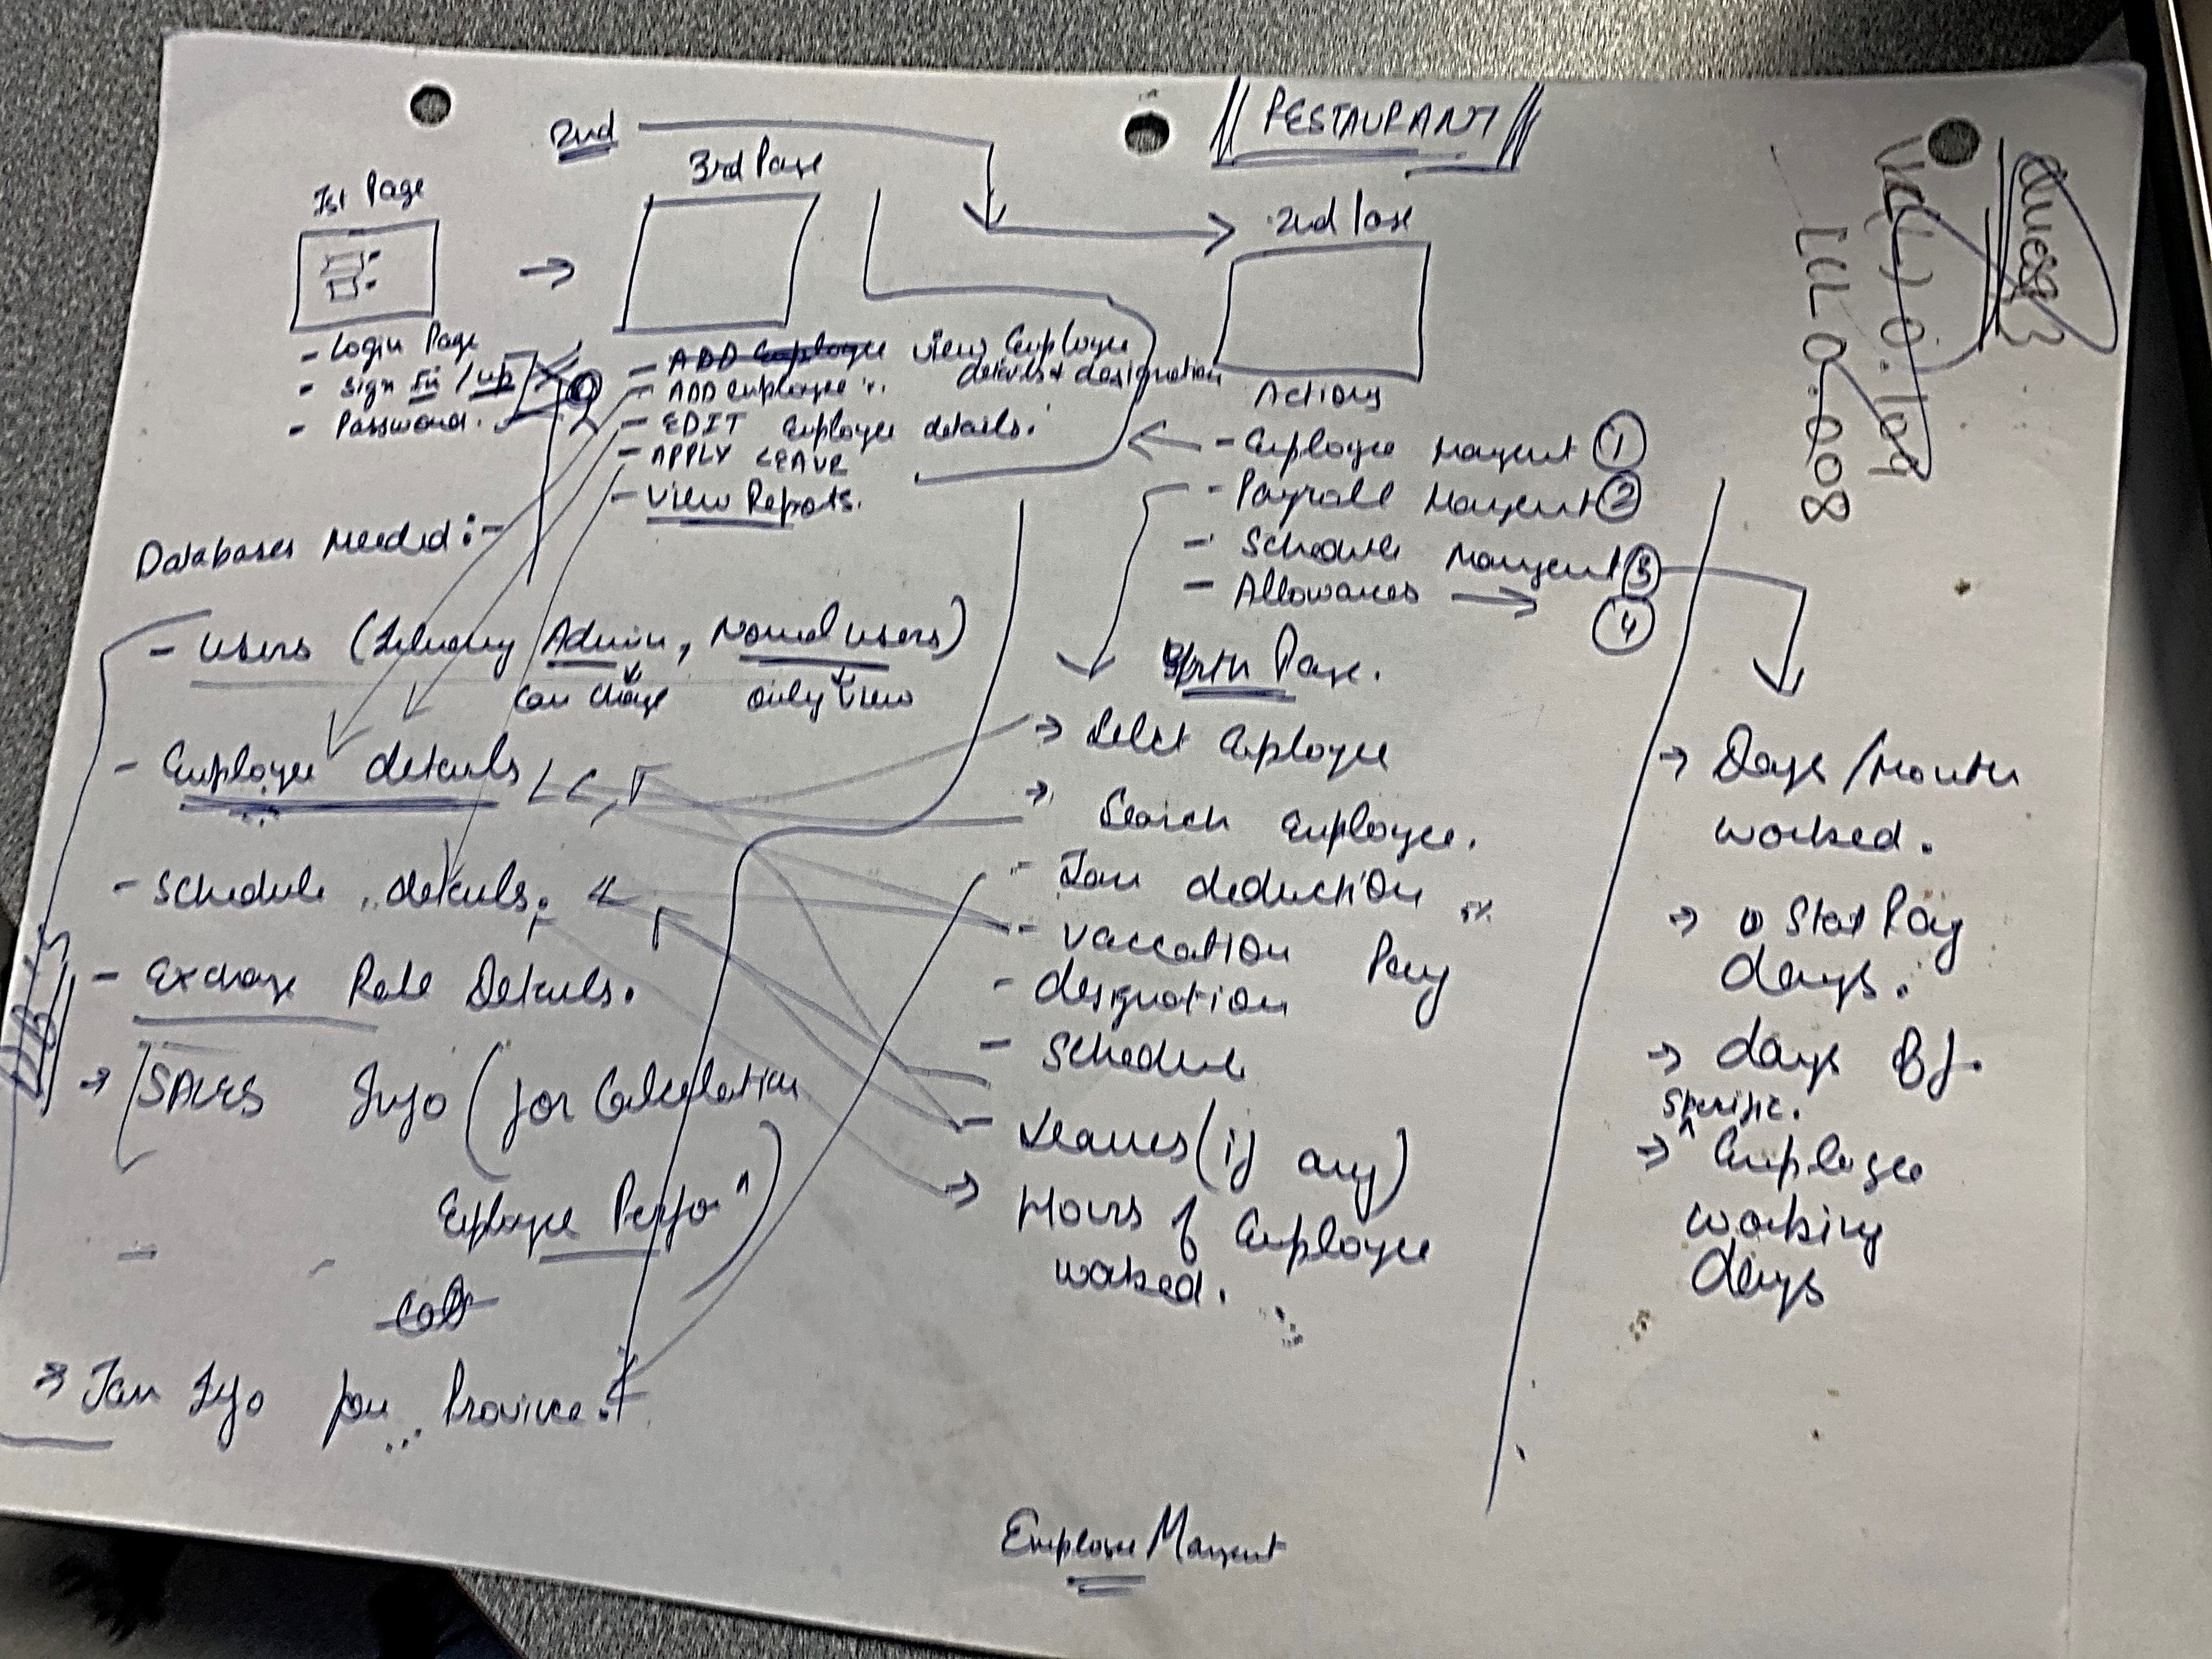 RESTAURANT
2nd
1st Page
3rd Page
2nd Page
- Login Page
- Sign In / up
- Password.
- ADD Employee View Employee
details & designation
- ADD Employee
- EDIT Employee details.
- APPLY LEAVE
- View Reports.
Actions
- Employee Mangent 1
- Payroll Mangent 2
- Schedule Mangent 3
- Allowances → 4
Databases Needed :-
- Users ( Admin, Normal users)
can change only view
- Employee details
- Schedule details.
- Exchange Rate Details.
DB's
→ SALES Info (for Calculation
Employee Perfo^)
⇒ Tax Info per Province.
Page.
→ Select Employee
→ Search Employee.
- Tax deduction
- Vaccation Pay 5%
- designation
- Schedule
- Leaves (if any)
→ Hours of Employee
worked.
→ Days / Month
worked.
→ Stat Pay
days.
→ days Off.
Specific.
→ ^ Employee
working
days
Employee Mangent
0.109
LCL 0.008